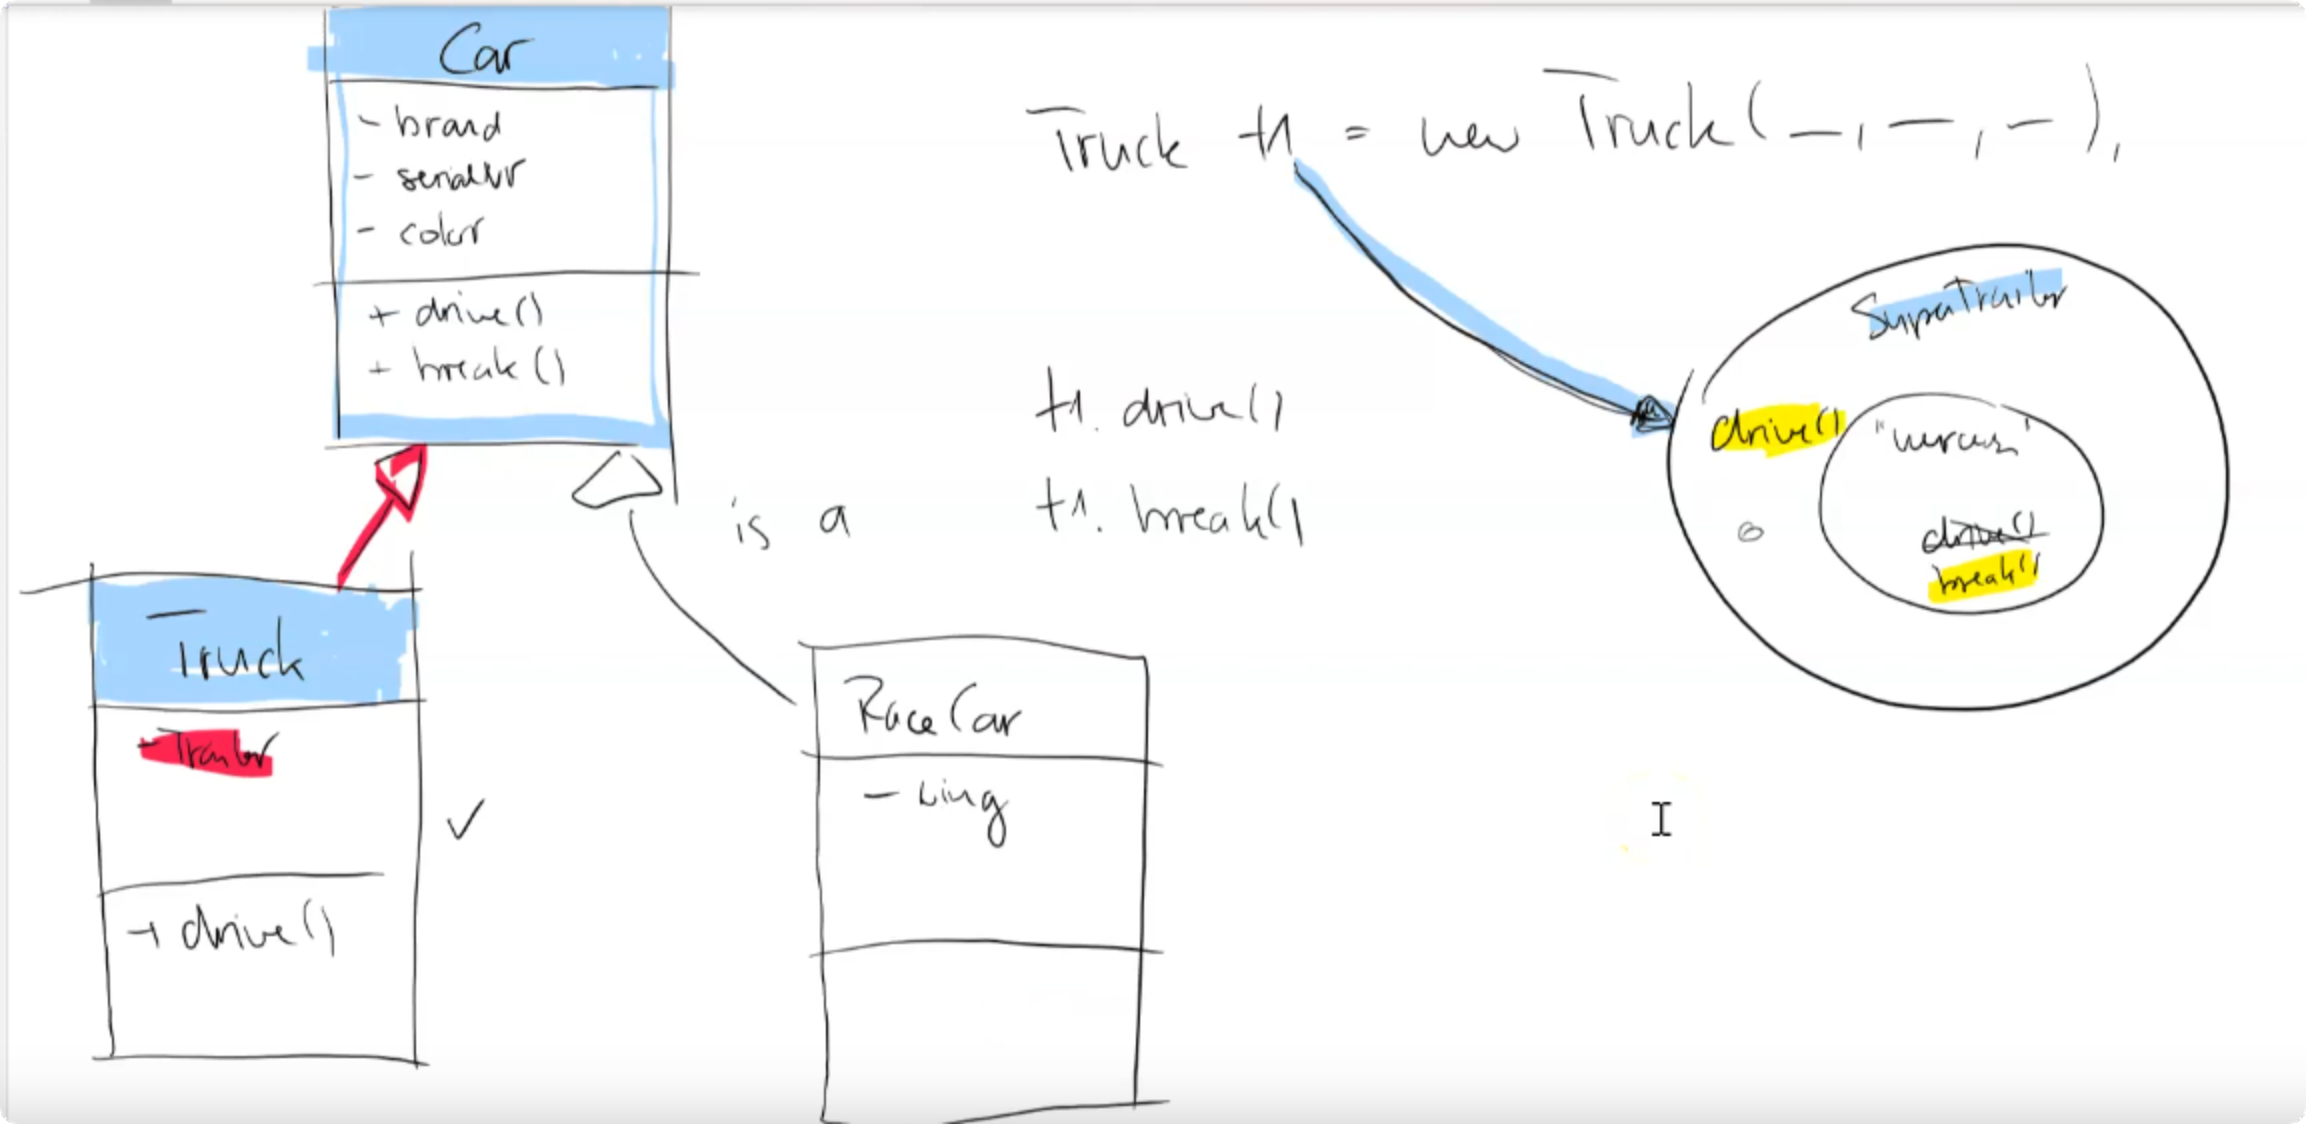 Car
- brand
- serialNr
- color
+ drive()
+ break()
Truck
- Trailer
+ drive()
is a
RaceCar
- wing
Truck t1 = new Truck(_, _, _);
t1.drive()
t1.break()
SuperTrailer
drive()
drive()
break()